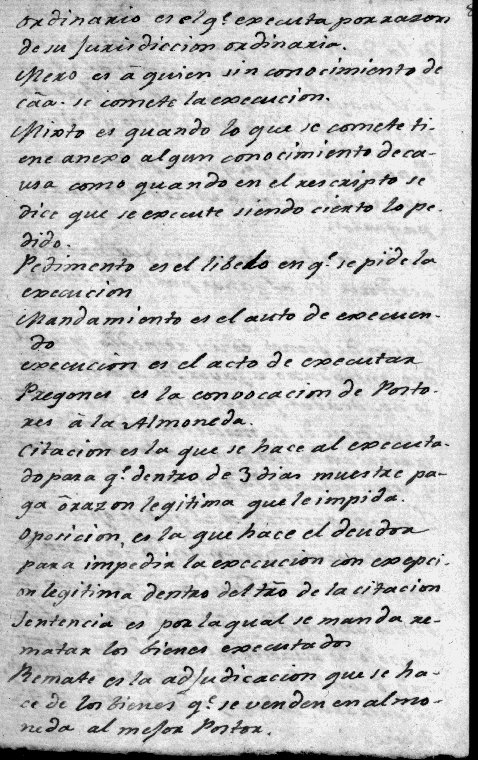 ordinario es el q.e executa por razon
de su Jurisdiccion ordinaria.
Mero es â quien sin conocimiento de
cãa. se comete la execucion.
Mixto es quando lo que se comete ti-
ene anexo algun conocimiento de ca-
usa como quando en el rescripto se
dice que se execute siendo cierto lo pe-
dido.
Pedimento es el libelo en q.e se pide la
execucion
Mandamiento es el auto de execuen-
do
execucion es el acto de executar
Pregones es la convocacion de Posto-
res â la Almoneda.
Citacion es la que se hace al executa-
do para q.e dentro de 3 dias muestre pa-
ga ô razon legitima que le impida.
Oposicion, es la que hace el deudor
para impedir la execucion con exepci-
on legitima dentro del tr̃o de la citacion
Sentencia es por la qual se manda re-
matar los bienes executados
Remate es la adJudicacion que se ha-
ce de los bienes q.e se venden en almo-
neda al meJor Postor.